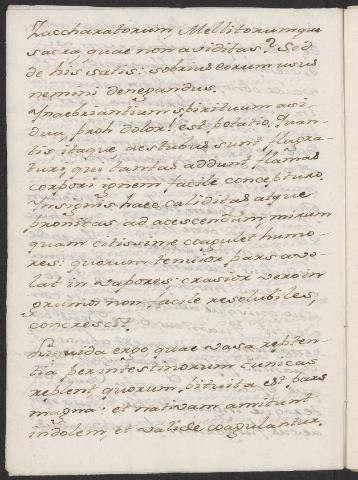 Zaccharatorum Mellitorumque
sacra quae non aviditas? Sed
de his satis: sobrius eorum usus
nemini denegandus.
Inaebriantium spirituum asi-
dua, proh dolor! est potatio. Quan-
tis itaque aestubus sunt flagra-
turi, qui tantas addunt flamas
corpori ignem facile concepturo.
Insignis haec caliditas atque
pronitas ad acescendum, mirum
quam citissime coagulet humo-
res: quorum tenuior pars avo-
lat in vapores: crasior vero in
grumos non facile resolubiles,
concrescit.
Liquida ergo quae vasa repten-
tia, per intestinorum tunicas
replent quorum, pituita est pars
magna: et nativam amitunt
indolem, et valide coagulantur.